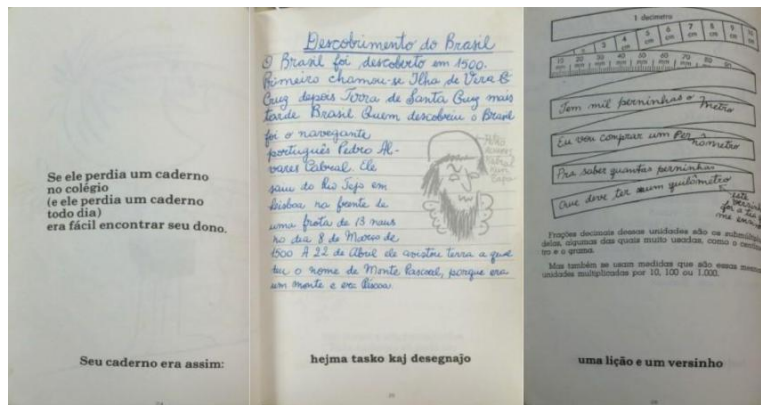 Se ele perdia um caderno
no colégio
(e ele perdia um caderno
todo dia)
era fácil encontrar seu dono.
Seu caderno era assim:
Descobrimento do Brasil
O Brasil foi descoberto em 1500.
Primeiro chamou-se Ilha de Vera
Cruz depois Terra de Santa Cruz mais
tarde Brasil Quem descobriu o Brasil
foi o navegante
português Pedro Al-
vares Cabral. Ele
saiu do Rio Tejo em
Lisboa na frente de
uma frota de 13 naus
no dia 8 de Março de
1500 A 22 de Abril ele avistou terra a qual
deu o nome de Monte Pascoal, porque era
um monte e era Páscoa.
hejma tasko kaj desegnajo
1 decímetro
2 3 4 5 6 7 8 9 10
cm cm cm cm cm cm cm
10 20 30 40 50 60 70 80
mm mm mm mm mm mm
Tem mil perninhas o metro
Eu vou comprar um Per nometro
Pra saber quantas perninhas
Que deve ter um quilômetro
Frações decimais dessas unidades são os
delas, algumas das quais muito usadas, como o
tro e o grama.
Mas também se usam medidas que são essas
unidades multiplicadas por 10, 100 ou 1.000.
uma lição e um versinho